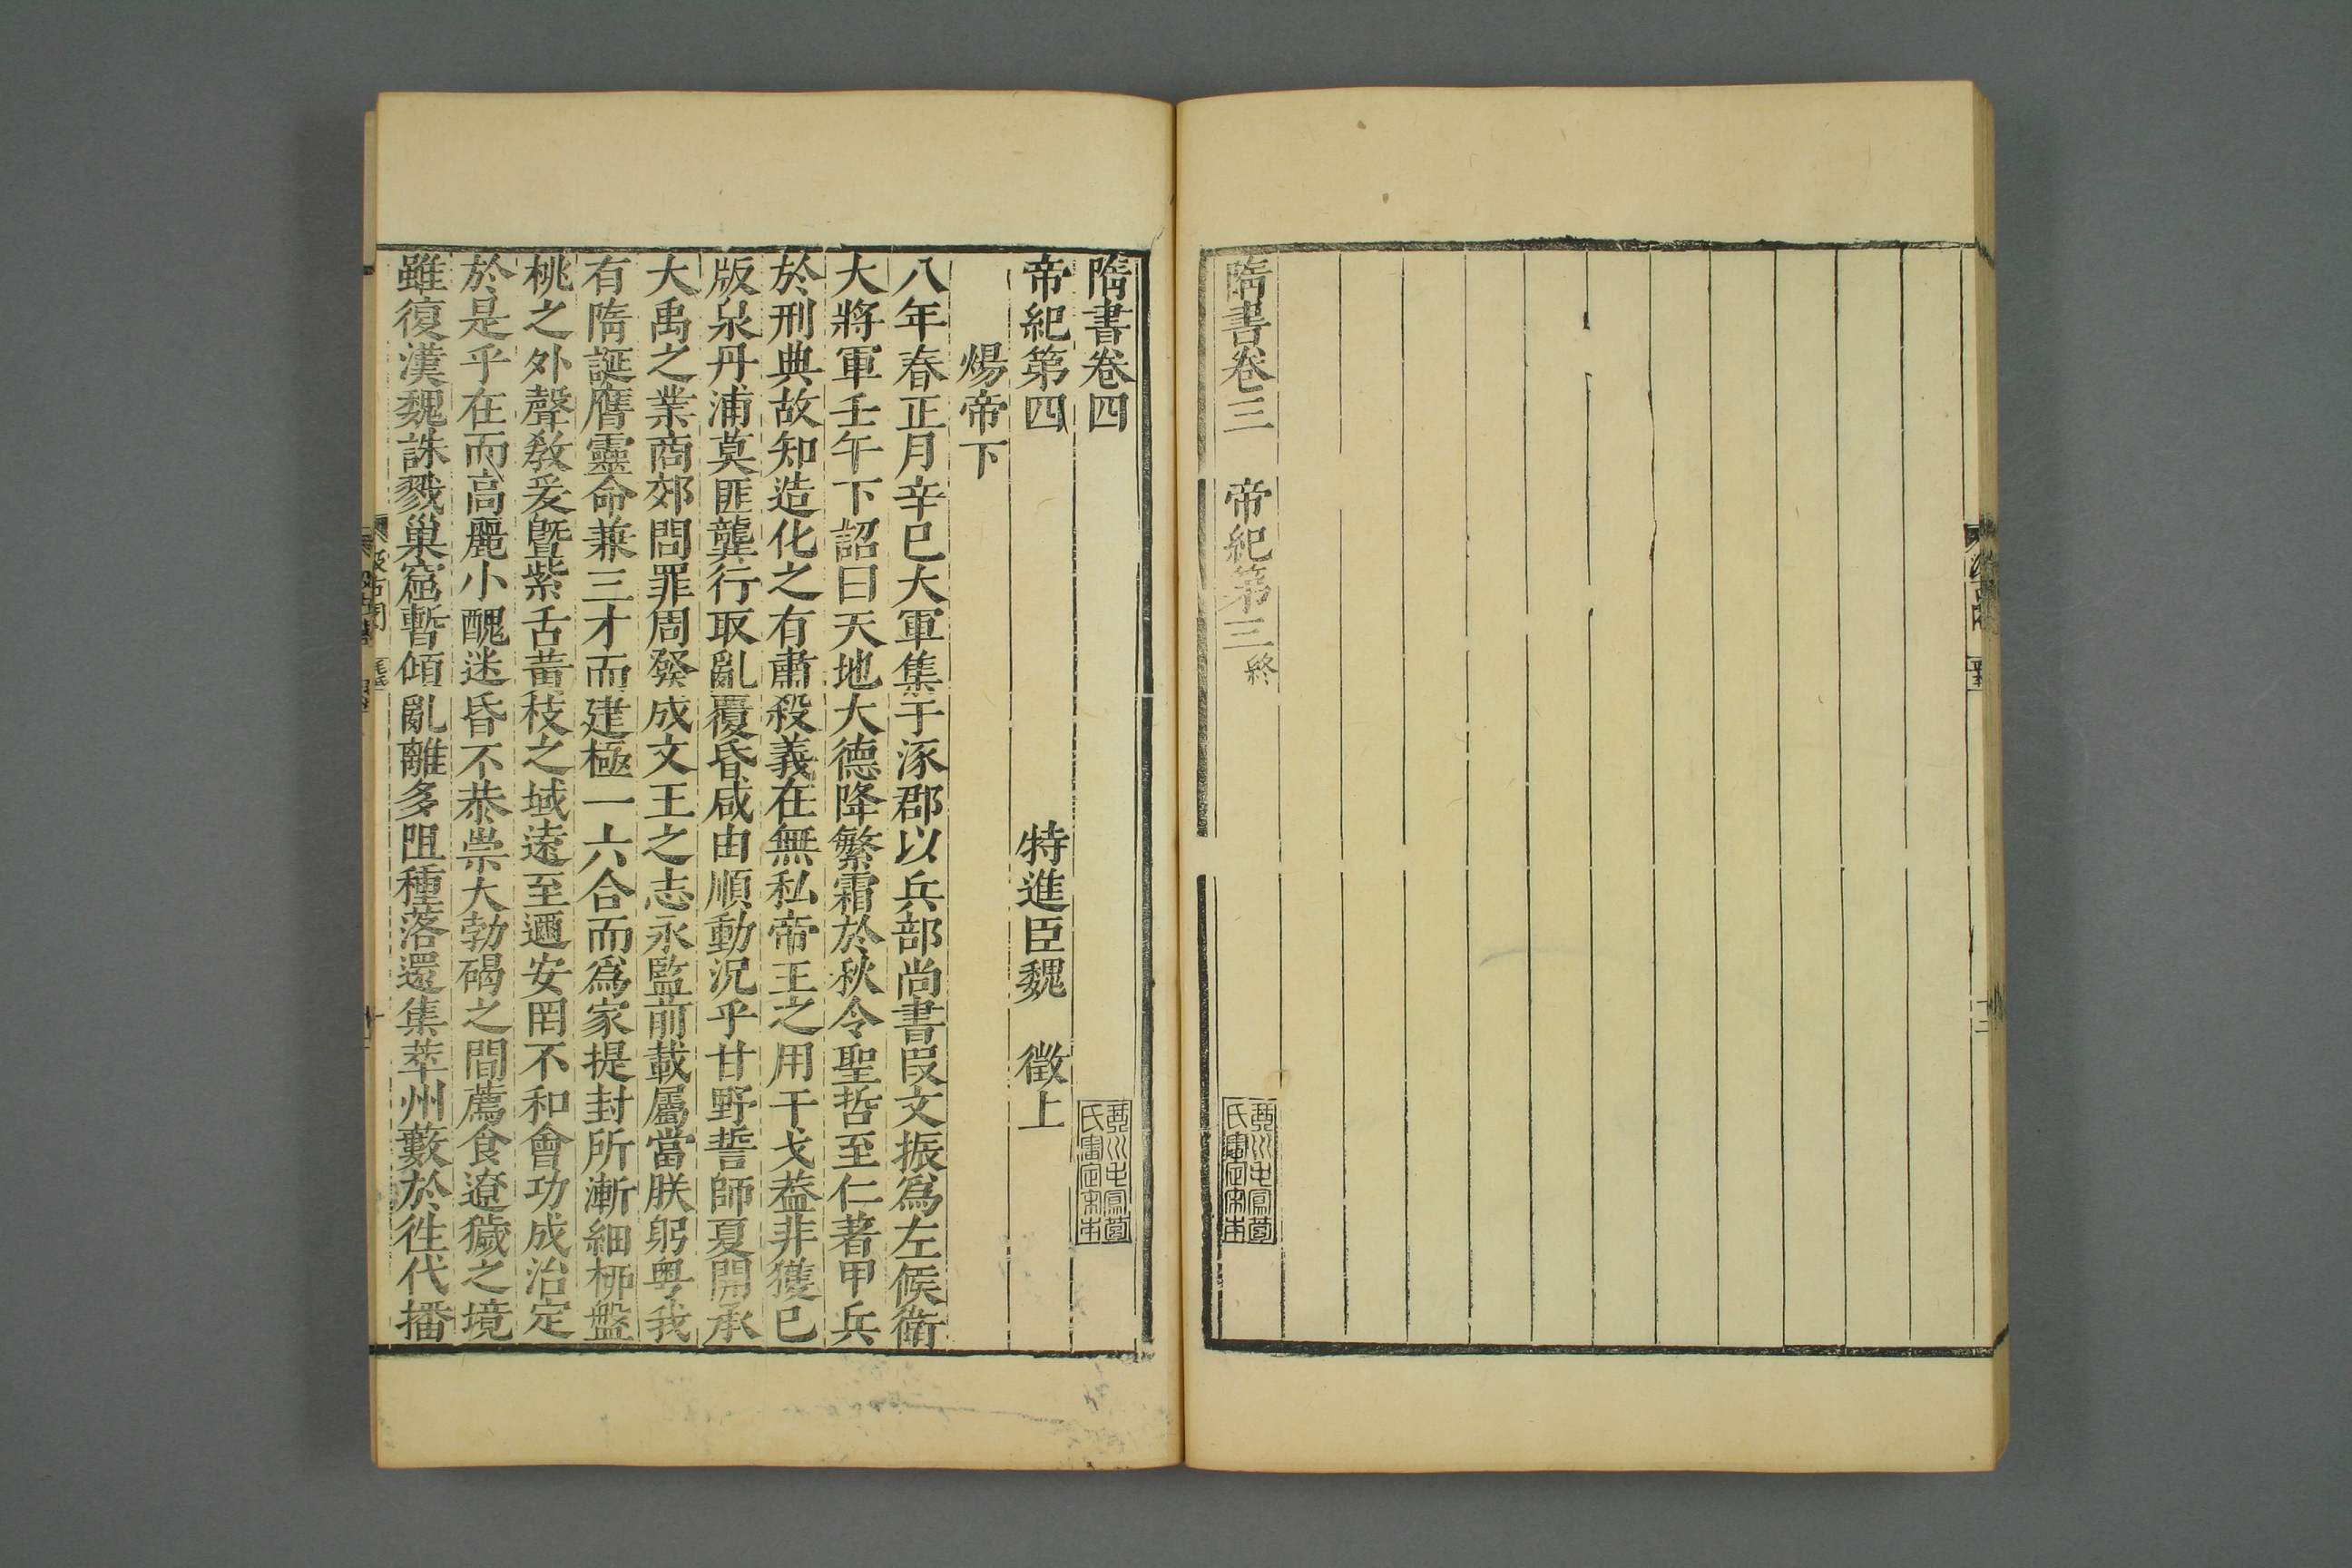 隋書卷三 帝紀第三終
隋書卷四
帝紀第四 特進臣魏 徵上
煬帝下
八年春正月辛巳大軍集于涿郡以兵部尚書叚文振爲左候衛
大將軍壬午下詔曰天地大德降繁霜於秋令聖哲至仁著甲兵
於刑典故知造化之有肅殺義在無私帝王之用干戈葢非獲已
版泉丹浦莫匪龔行取亂覆昏咸由順動況乎甘野誓師夏開承
大禹之業商郊問罪周發成文王之志永監前載屬當朕躬粵我
有隋誕膺靈命兼三才而建極一六合而爲家提封所漸細柳盤
桃之外聲敎爰曁紫舌黃枝之域遠至邇安罔不和會功成治定
於是乎在而高麗小醜迷昏不恭崇大勃碣之間薦食遼獩之境
雖復漢魏誅戮巢窟暫傾亂離多阻種落還集萃州藪於徃代播